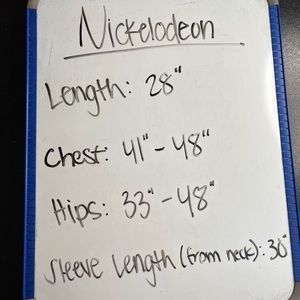 Nickelodeon
Length: 28"
Chest: 41" - 48"
Hips: 33" - 48"
Sleeve Length (from neck): 30"